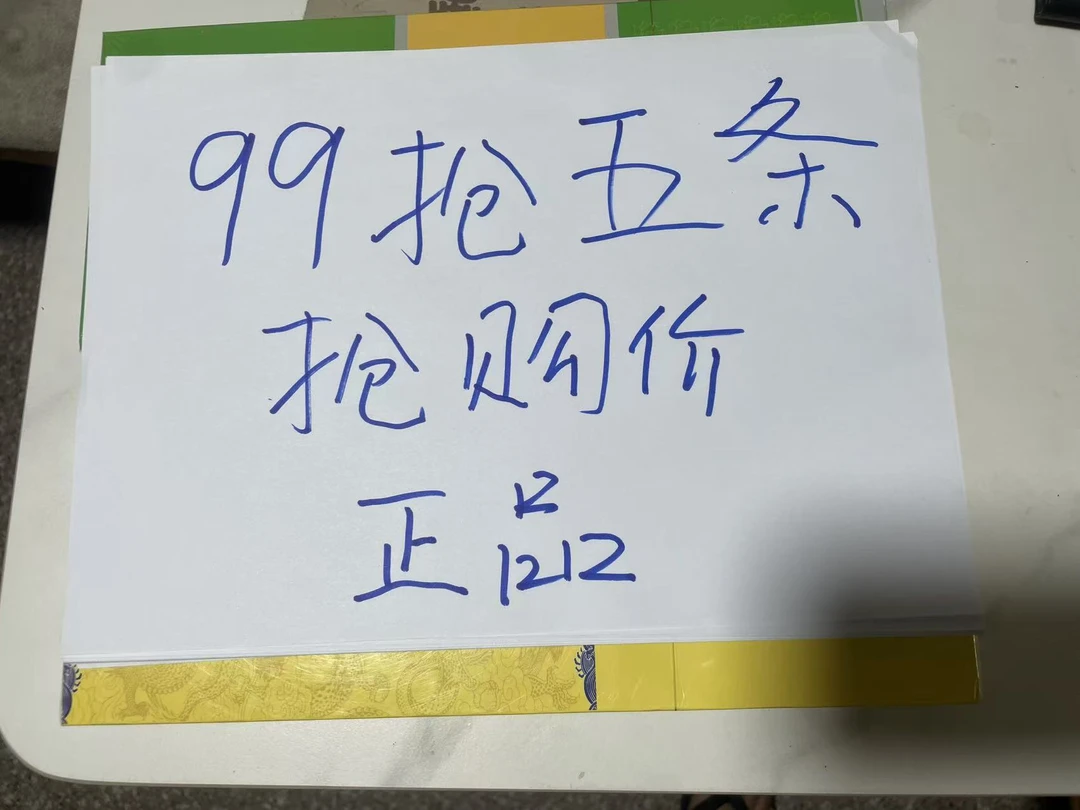 99抢五条
抢购价
正品